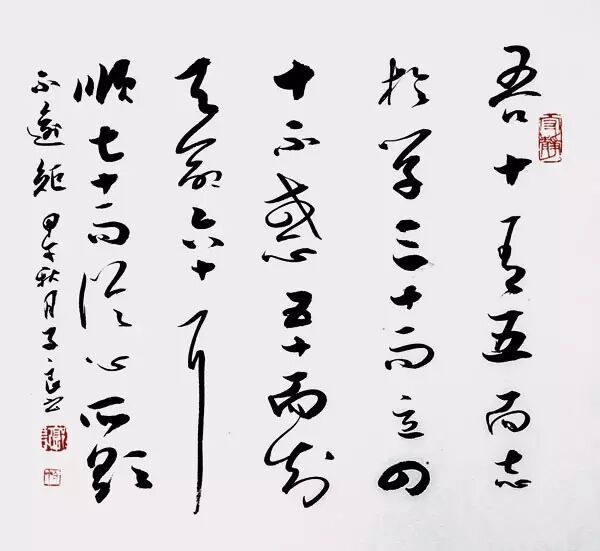 吾十有五而志
於學三十而立四
十不惑五十而知
天命六十耳
順七十而從心所欲
不逾矩 甲午秋月子良書